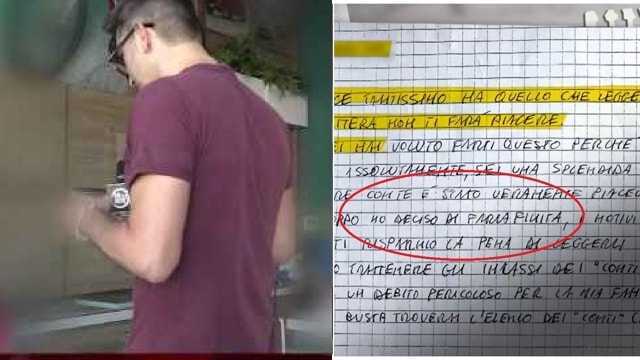 CE TANTISSIMO MA QUELLO CHE LEGGE
TTERA NON TI FARÀ PIACERE.
EI HAI VOLUTO FARTI QUESTO PERCHÉ
ASSOLUTAMENTE, SEI UNA SPLENDIDA
RE CON TE È STATO VERAMENTE PIACE
HO DECISO DI FARLA FINITA, MOTIVI
TI RISPARMIO LA PENA DI LEGGERLI
O TRATTENERE GLI INCASSI DEI "CONTI
UN DEBITO PERICOLOSO PER LA MIA FAM
BUSTA TROVERAI L'ELENCO DEI "CONTI" C